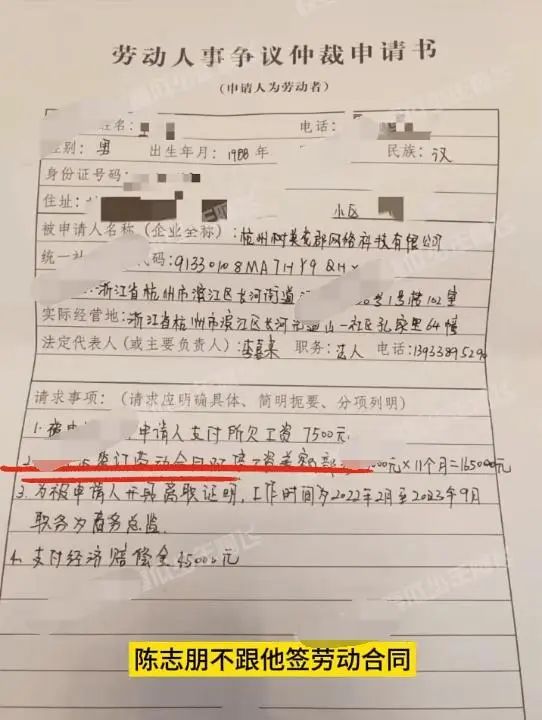 劳动人事争议仲裁申请书
(申请人为劳动者)
姓名: 电话:
性别: 男 出生年月: 1988年 民族: 汉
身份证号码:
住址: 小区
被申请人名称(企业全称): 杭州树英龙郡网络科技有限公司
统一社 代码: 91330108MA7HY9QHX
浙江省杭州市滨江区长河街道 号1号楼102室
实际经营地: 浙江省杭州市滨江区长河街道山一社区孔家里64幢
法定代表人(或主要负责人): 职务: 法人 电话: 1393389529
请求事项:(请求应明确具体、简明扼要、分项列明)
1. 被申 申请人支付所欠工资 7500元
2. 签订劳动合同双倍工资差额部 000元×11个月=165000元
3. 为被申请人开具离职证明,工作时间为2022年2月至2023年9月
职务为商务总监
4. 支付经济赔偿金 45000元
陈志朋不跟他签劳动合同